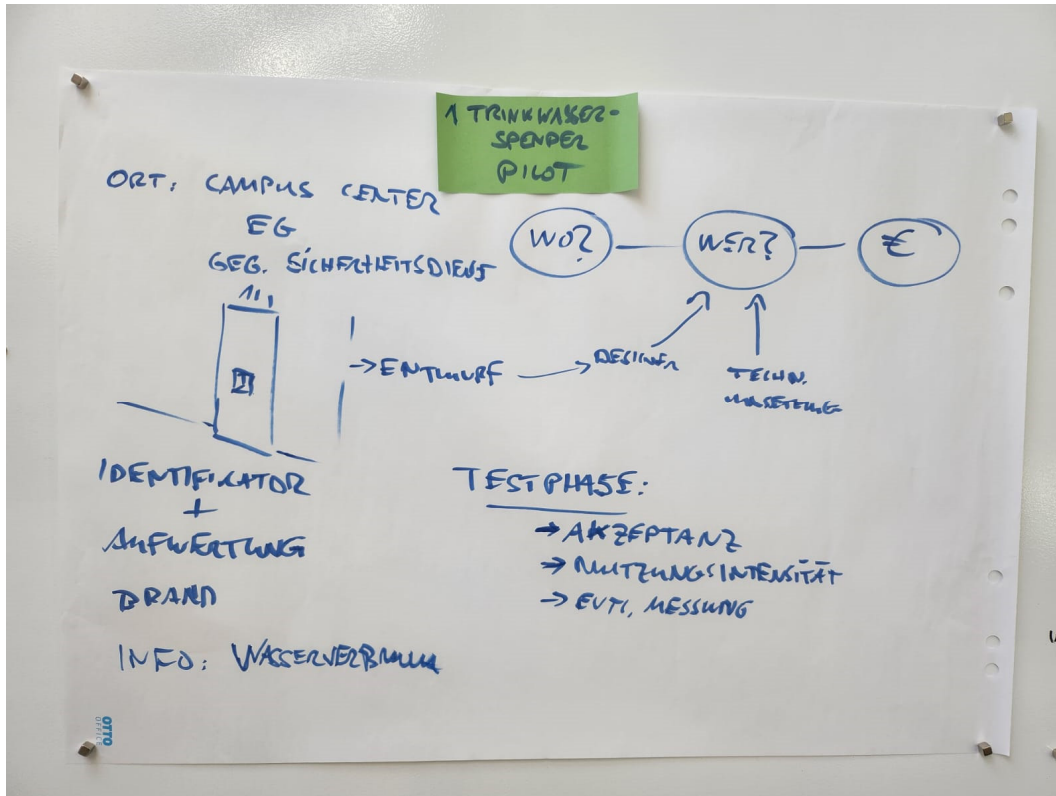 1 TRINKWASSER-
SPENDER
PILOT
ORT: CAMPUS CENTER
EG
GEG. SICHERHEITSDIENST
WO?
WER?
€
→ ENTWURF → DESIGNER
TECHN.
UMSETZUNG
IDENTIFIKATOR
+
AUFWERTUNG
BRAND
INFO: WASSERVERBRAUCH
TESTPHASE:
→ AKZEPTANZ
→ NUTZUNGSINTENSITÄT
→ EVTL. MESSUNG
OTTO
OFFICE